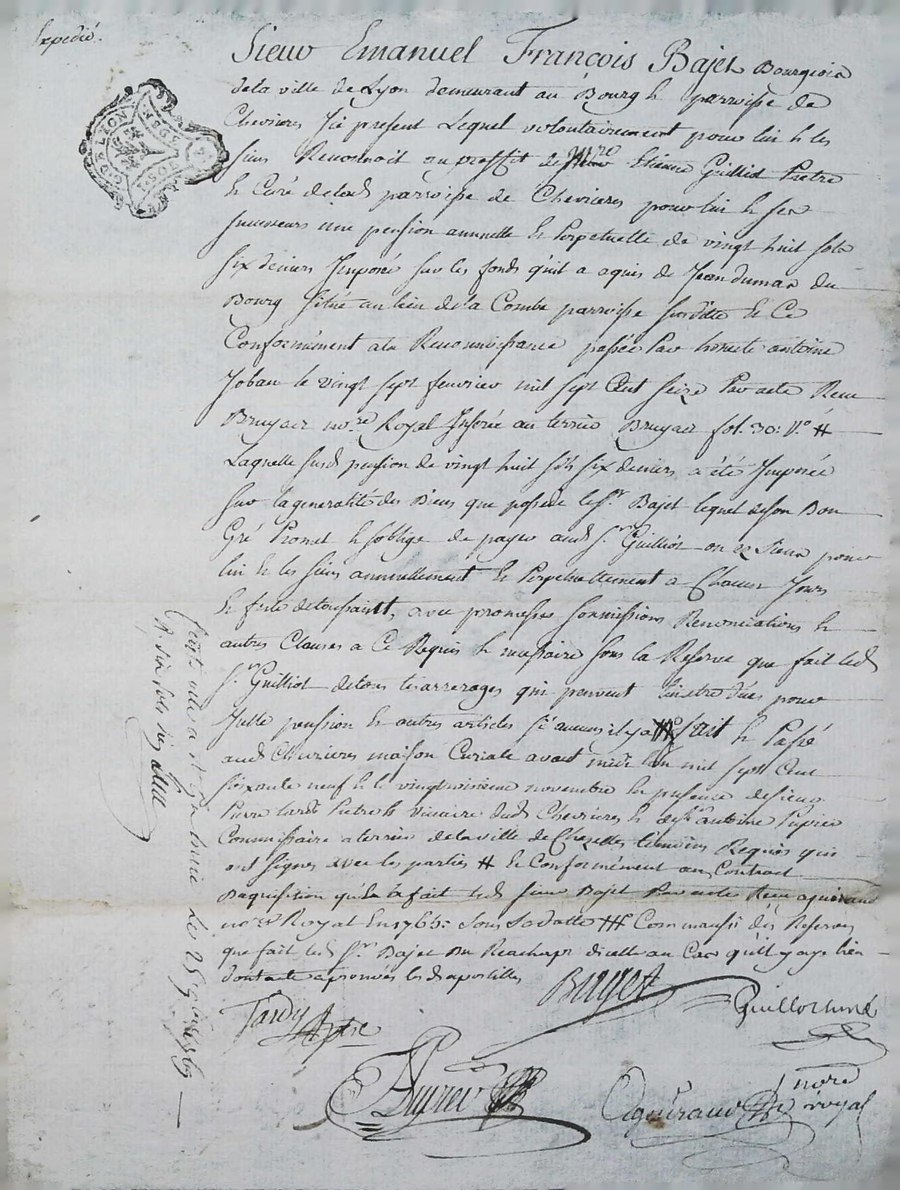 Expedié.
Sieur Emanuel François Bajet Bourgeois
de la ville de Lyon demeurant au Bourg & parroisse de
Chevrieres Icy present Lequel volontairement pour lui & les
siens Reconnoit au proffit de Etienne Guilliot Pretre
& Curé de lad. parroisse de Chevrieres pour lui & ses
successeurs une pension annuelle & Perpetuelle de vingt huit sols
six deniers Imposée sur les fonds qu'il a aquis de Jean dumas du
Bourg situé au lieu de la Combe parroisse susditte & Ce
Conformément a la Reconnoissance passée par honnete antoine
Joban le vingt sept fevrier mil sept Cent seize Par acte Receu
Bruyact no.re Royal Inserée au terrier Bruyact fol. 30: V.o #
Laquelle susd. pension de vingt huit sols six deniers a été Imposée
sur la generalité des Biens que possede le S.r Bajet lequel de son Bon
Gré Promet & s'oblige de payer aud. S.r Guilliot ou es Sieurs pour
lui & les siens annuellement & Perpetuellement a Chacun Jours
& feste de toussaint, avec promesses soumissions Renonciations &
autres Clauses a Ce Requis & necessaire sous la Reserve que fait led.
S.r Guilliot de tous les arrerages qui peuvent lui etre dües pour
ditte pension & autres articles si aucuns il y a fait & Passé
aud. Chevrieres maison Curiale avant midi L'an mil sept Cent
soixante neuf & le vingt novembre En presence de sieur
Pierre tardi Pretre & Vicaire dud. Chevrieres & de S.r antoine Pupier
Commissaire a terrier de la ville de Chazelles temoins Requis qui
ont signés avec les parties # & Conformément au Contract
D'aquisition qu'en a fait led. Sieur Bajet Par acte Receu agniraud
no.re Royal En 1763: sous sa datte # Comm'aussi des Reserves
que fait led. S.r Bajet du Reachapt d'icelle au Cas qu'il y aye lieu
dont acte aprouvés les d. apostilles
Bajet
Guilliot curé
Tardy Ptre
Pupier
Agniraud nore royal
Controllé a St Gal mier Le 25 9bre 1769
R. six sols six d.